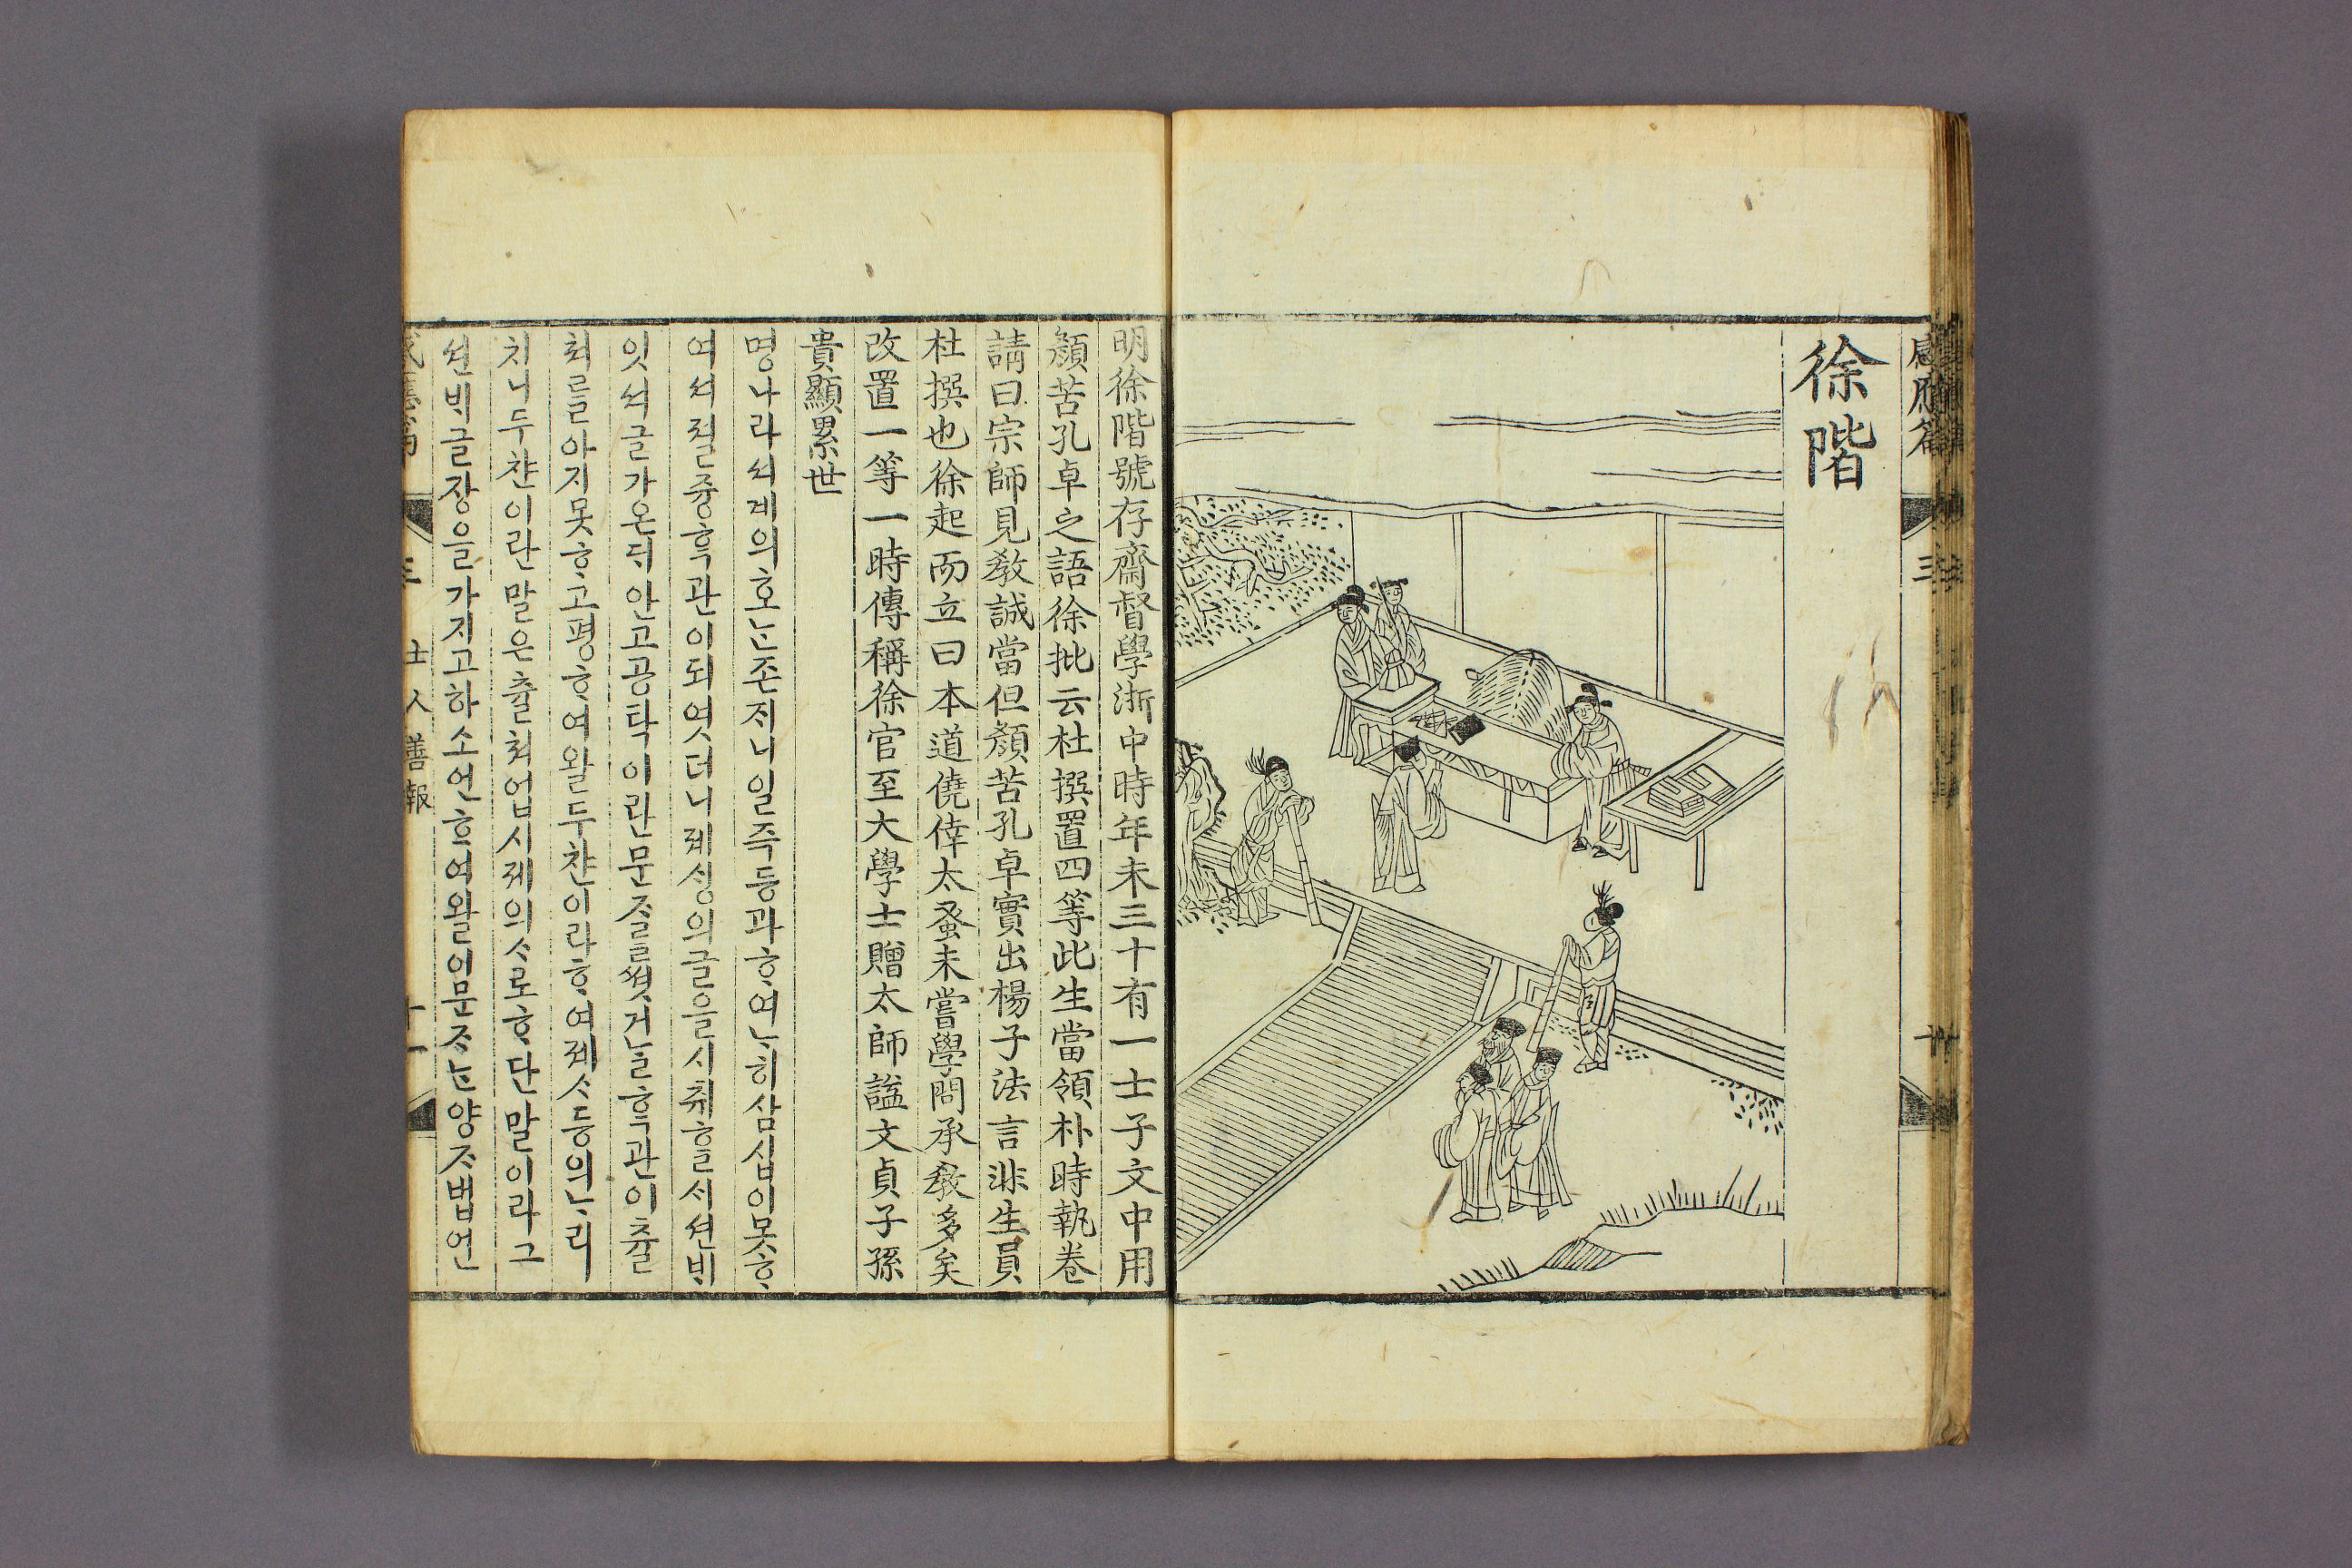 感應篇 三 十
徐階
明徐階號存齋督學浙中時年未三十有一士子文中用
顏苦孔卓之語徐批云杜撰置四等此生當領朴時執卷
請曰宗師見敎誠當但顏苦孔卓實出楊子法言非生員
杜撰也徐起而立曰本道僥倖太蚤未嘗學問承敎多矣
改置一等一時傳稱徐官至大學士贈太師謚文貞子孫
貴顯累世
명나라셔계의호ᄂᆞᆫ존ᄌᆡ니일즉등과ᄒᆞ여ᄂᆞ히삼십이못ᄒᆞ
여셔졀즁ᄒᆞᆨ관이되엿더니졔ᄉᆡᆼ의글을시취ᄒᆞᆯᄉᆡ션ᄇᆡ
잇셔글가온ᄃᆡ안고공탁이란문ᄌᆞᄅᆞᆯ썻거ᄂᆞᆯᄒᆞᆨ관이츌
쳐ᄅᆞᆯ아지못ᄒᆞ고평ᄒᆞ여왈두찬이라ᄒᆞ여졔ᄉᆞ등의ᄂᆞ리
치니두찬이란말은츌쳐업시졔의ᄉᆞ로ᄒᆞ단말이라그
션ᄇᆡ글쟝을가지고하소연ᄒᆞ여왈이문ᄌᆞᄂᆞᆫ양ᄌᆞ법언
感應篇 三 士人善報 十一